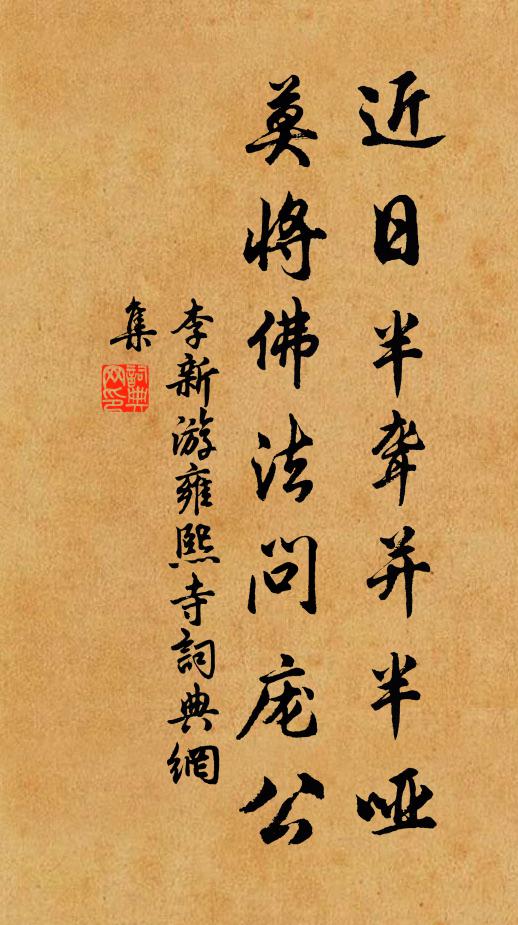 近日半聋并半哑
莫将佛法问庞公
李新游雍熙寺詞典網
集
詞典
网印